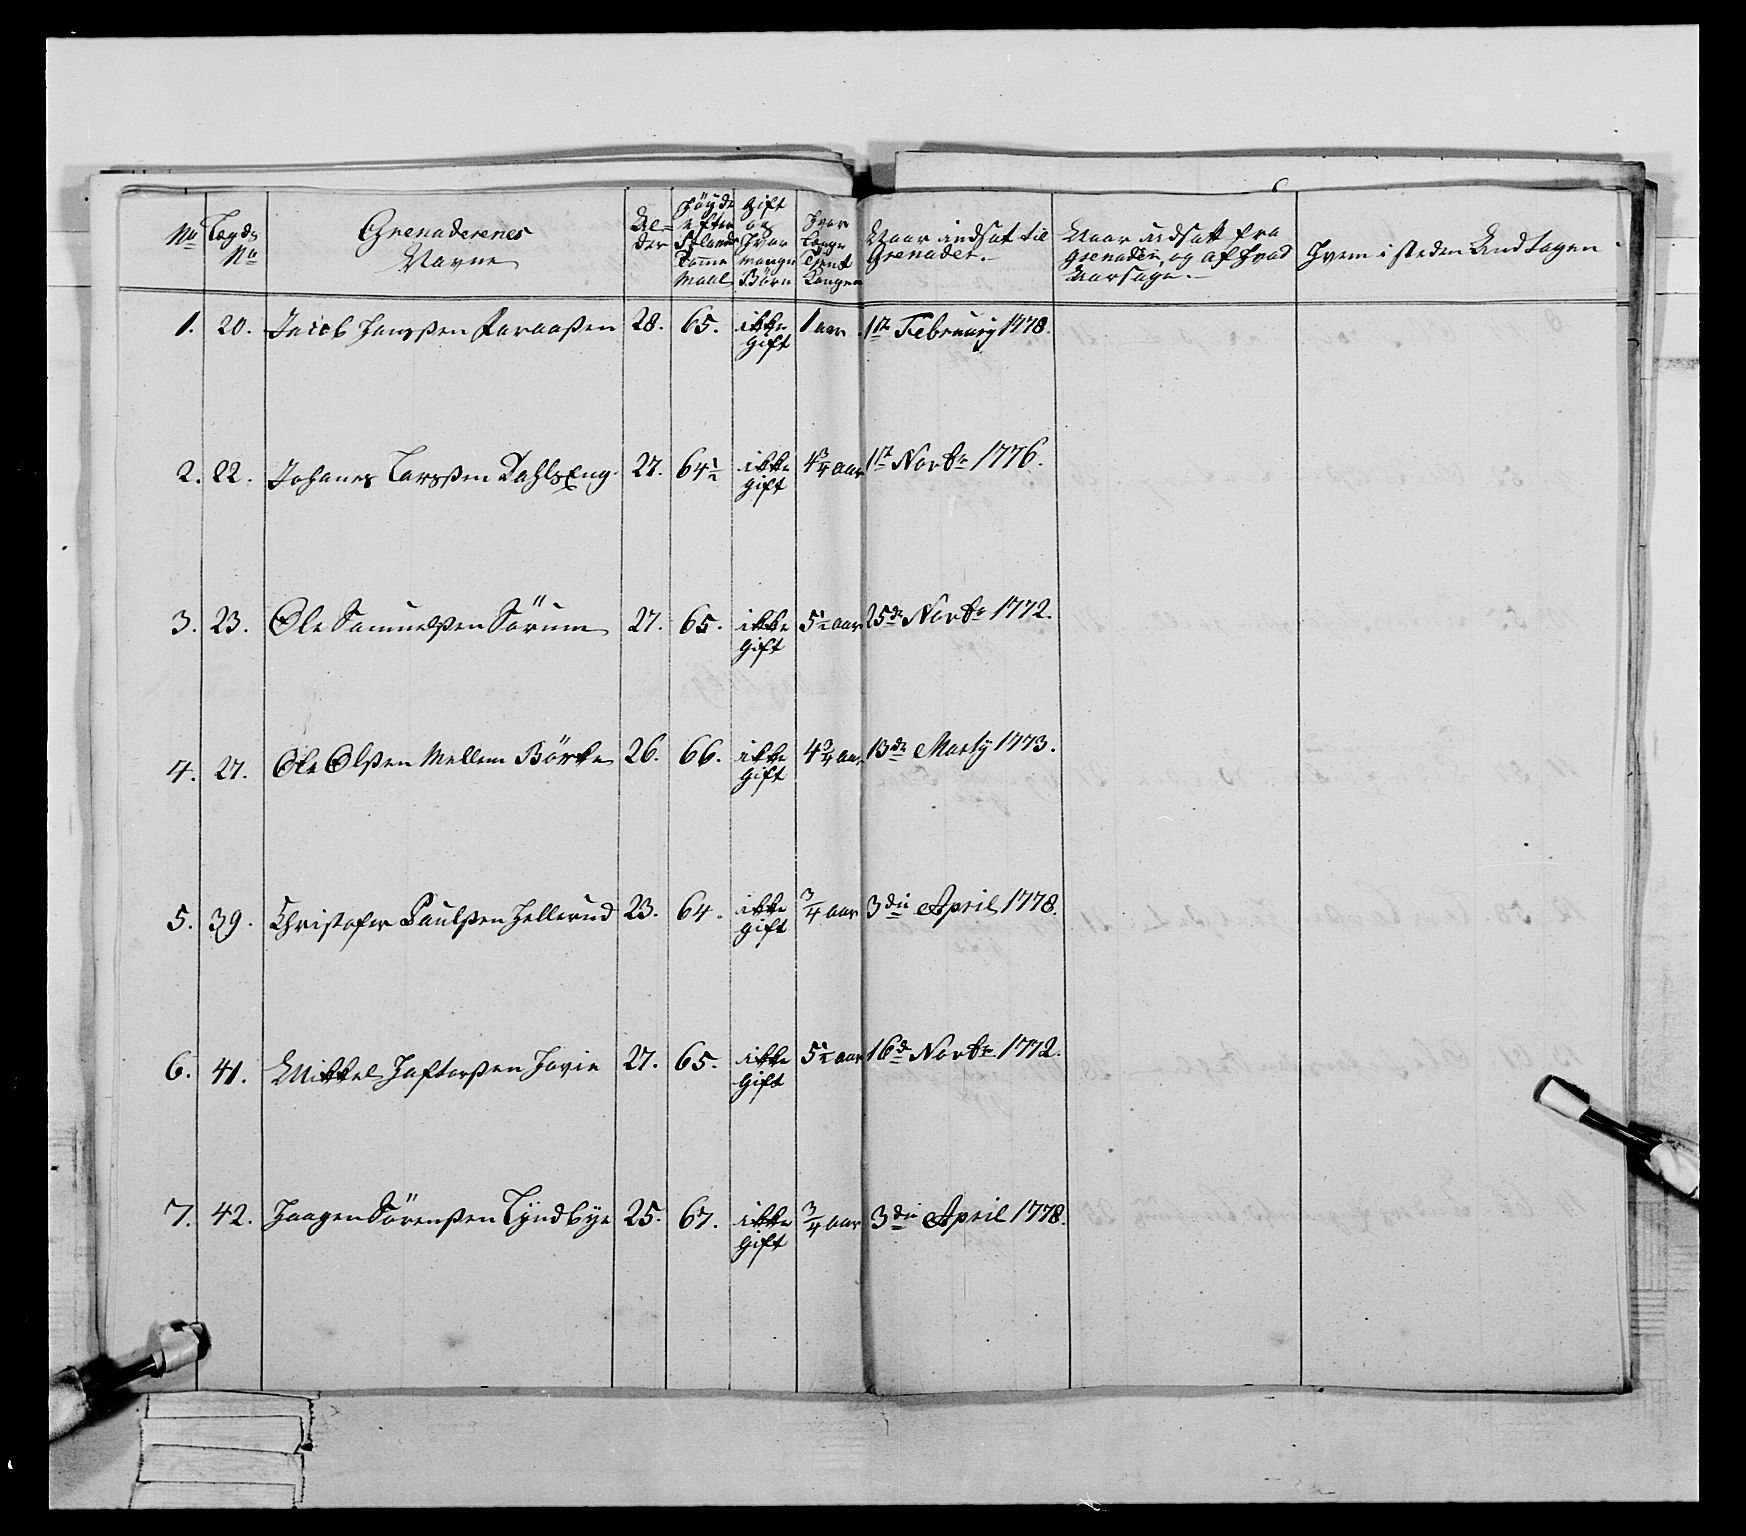 No Lægds No Grenaderenes Navne Al= der Höyde efter Sælands Tomme Maal Gift og Hvor mange Börn Hvor Længe Tient Kongen Naar indsat til Grenader. Naar udsatt fra Grenader, og af Hvad Aarsage. Hvem i steden Andtagen
1. 20. Jacob Hansßen Faraasßen 28. 65. ikke Gift 1 aar 1te Februarij 1778.
2. 22. Johanes Larsßen DahlsEng. 27. 64½ ikke Gift 4¾ aar 1te Novbr 1776.
3. 23. Ole Samuelsßen Sörum 27. 65. ikke Gift 5½ aar 25de Novbr 1772.
4. 27. Ole Olsßen Mellem Börke 26. 66. ikke Gift 4¾ aar 13de Martij 1773.
5. 39. Christofer Paulsßen Hellerud 23. 64. ikke Gift ¾ aar 3die April 1778.
6. 41. Mikkel Haftorsßen Hovie 27. 65. ikke Gift 5½ aar 16de Novbr 1772.
7. 42. Haagen Sörensßen Lyndbye 25. 67. ikke Gift ¾ aar 3die April 1778.